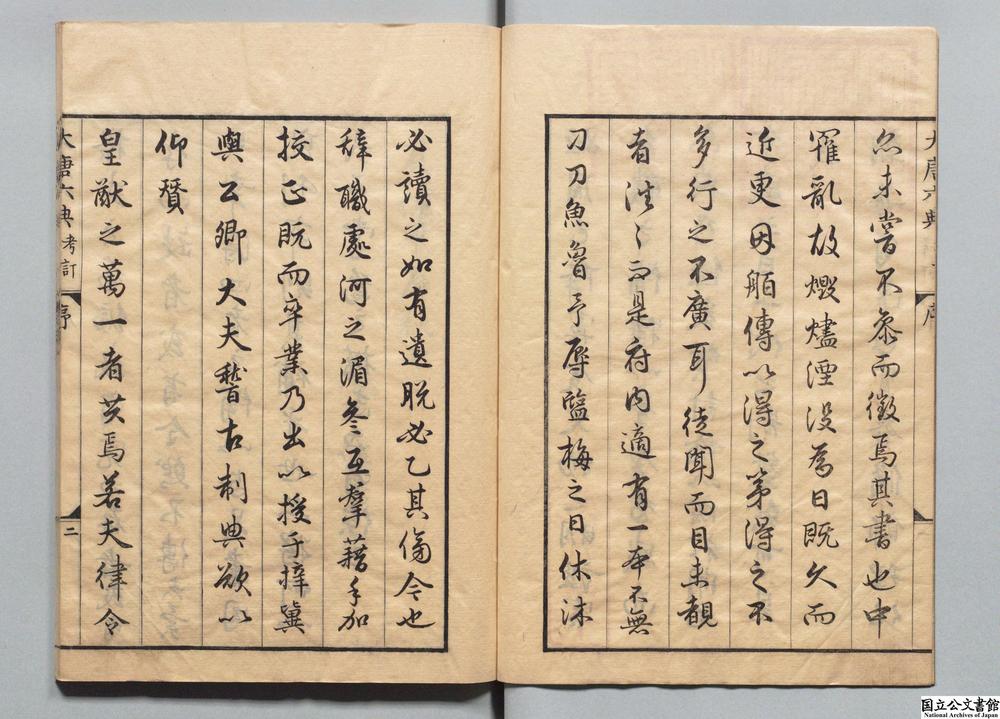 大唐六典
尒未嘗不叅而徵焉其書也中
罹亂故燬燼湮没為日既久而
近更因舶傳以得之第得之不
多行之不廣耳徒聞而目未覩
者徃〻而是府内適有一本不無
刀刀魚魯予辱鹽梅之日休沐
必讀之如有遺脱必乙其傷今也
辭職處河之湄叅互羣藉手加
挍正既而卒業乃出以授于擇冀
與公卿大夫嵆古制典欲以
仰贊
皇猷之萬一者共焉若夫律令
大唐六典考訂 序 二
国立公文書館
National Archives of Japan